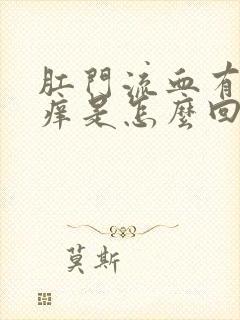 肛門流血有
痒是怎麼回
莫斯